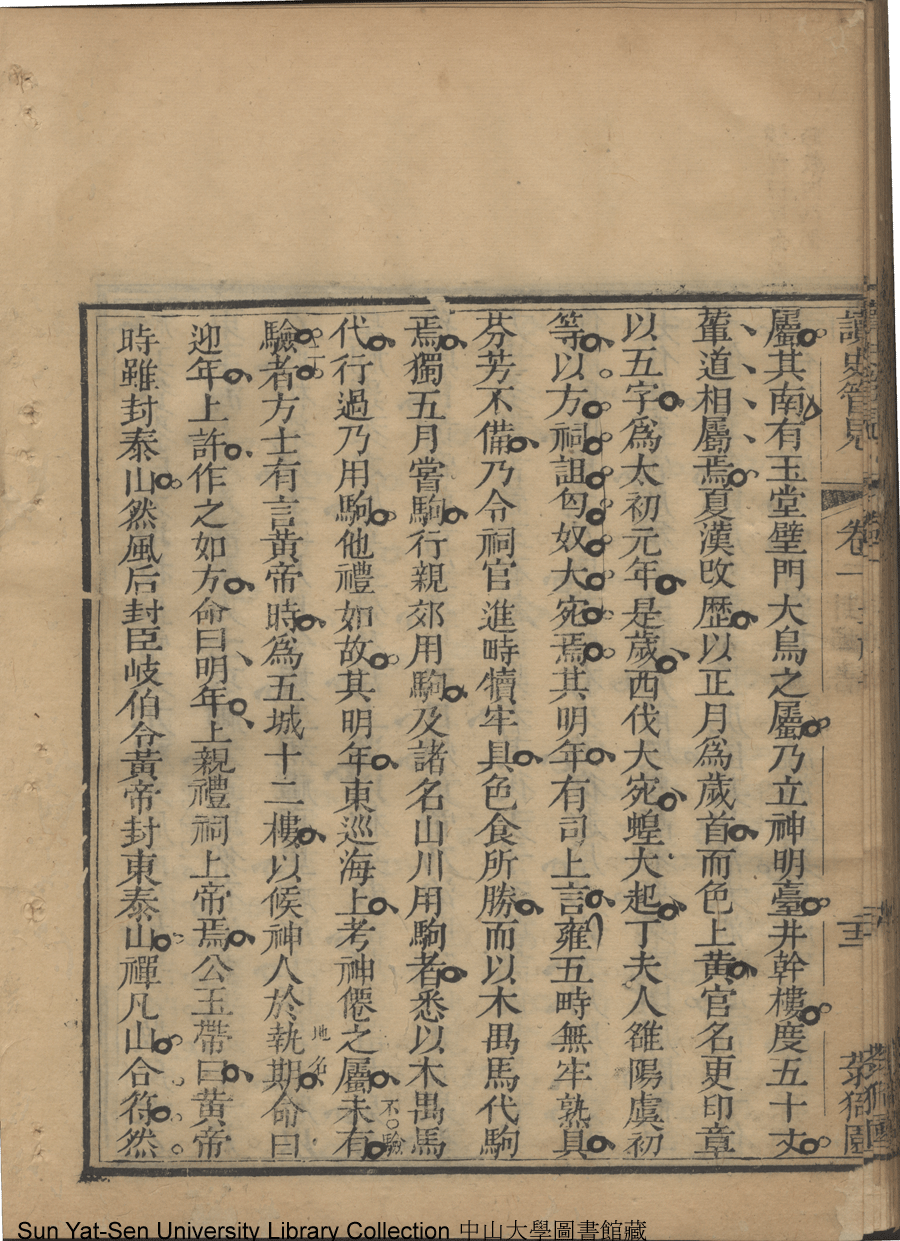 讀史管見 卷一
屬其南有玉堂璧門大鳥之屬乃立神明臺井幹樓度五十丈
輦道相屬焉夏漢改歷以正月爲歲首而色上黃官名更印章
以五字爲太初元年是歲西伐大宛蝗大起丁夫人雒陽虞初
等以方祠詛匈奴大宛焉其明年有司上言雍五畤無牢熟具
芬芳不備乃令祠官進畤犢牢具色食所勝而以木禺馬代駒
焉獨五月嘗駒行親郊用駒及諸名山川用駒者悉以木禺馬
代行過乃用駒他禮如故其明年東巡海上考神僊之屬未有
不驗
驗者方士有言黃帝時爲五城十二樓以候神人於執期命曰
地名
迎年上許作之如方命曰明年上親禮祠上帝焉公玉帶曰黃帝
時雖封泰山然風后封臣岐伯令黃帝封東泰山禪凡山合符然
Sun Yat-Sen University Library Collection 中山大學圖書館藏